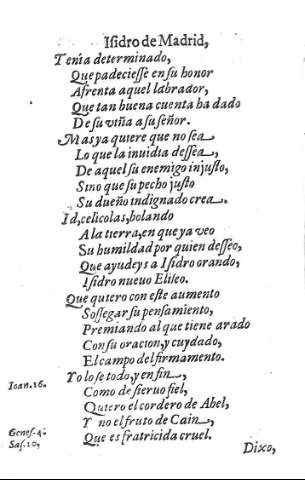 Isidro de Madrid,
Tenia determinado,
Que padeciesse en su honor
Afrenta aquel labrador,
Que tan buena cuenta ha dado
De su viña a su señor.
Mas ya quiere que no sea
Lo que la inuidia dessea,
De aquel su enemigo injusto,
Sino que su pecho justo
Su dueño indignado crea.
Id, celicolas, bolando
A la tierra, en que ya veo
Su humildad por quien desseo,
Que ayudeys a Isidro orando,
Isidro nueuo Eliseo.
Que quiero con este aumento
Sossegar su pensamiento,
Premiando al que tiene arado
Con su oracion, y cuydado,
El campo del firmamento.
Ioan. 16. Yo lo se todo, y en fin,
Como de sieruo fiel,
Quiero el cordero de Abel,
Genes. 4. Y no el fruto de Cain,
Sap. 10, Que es fratricida cruel.
Dixo,